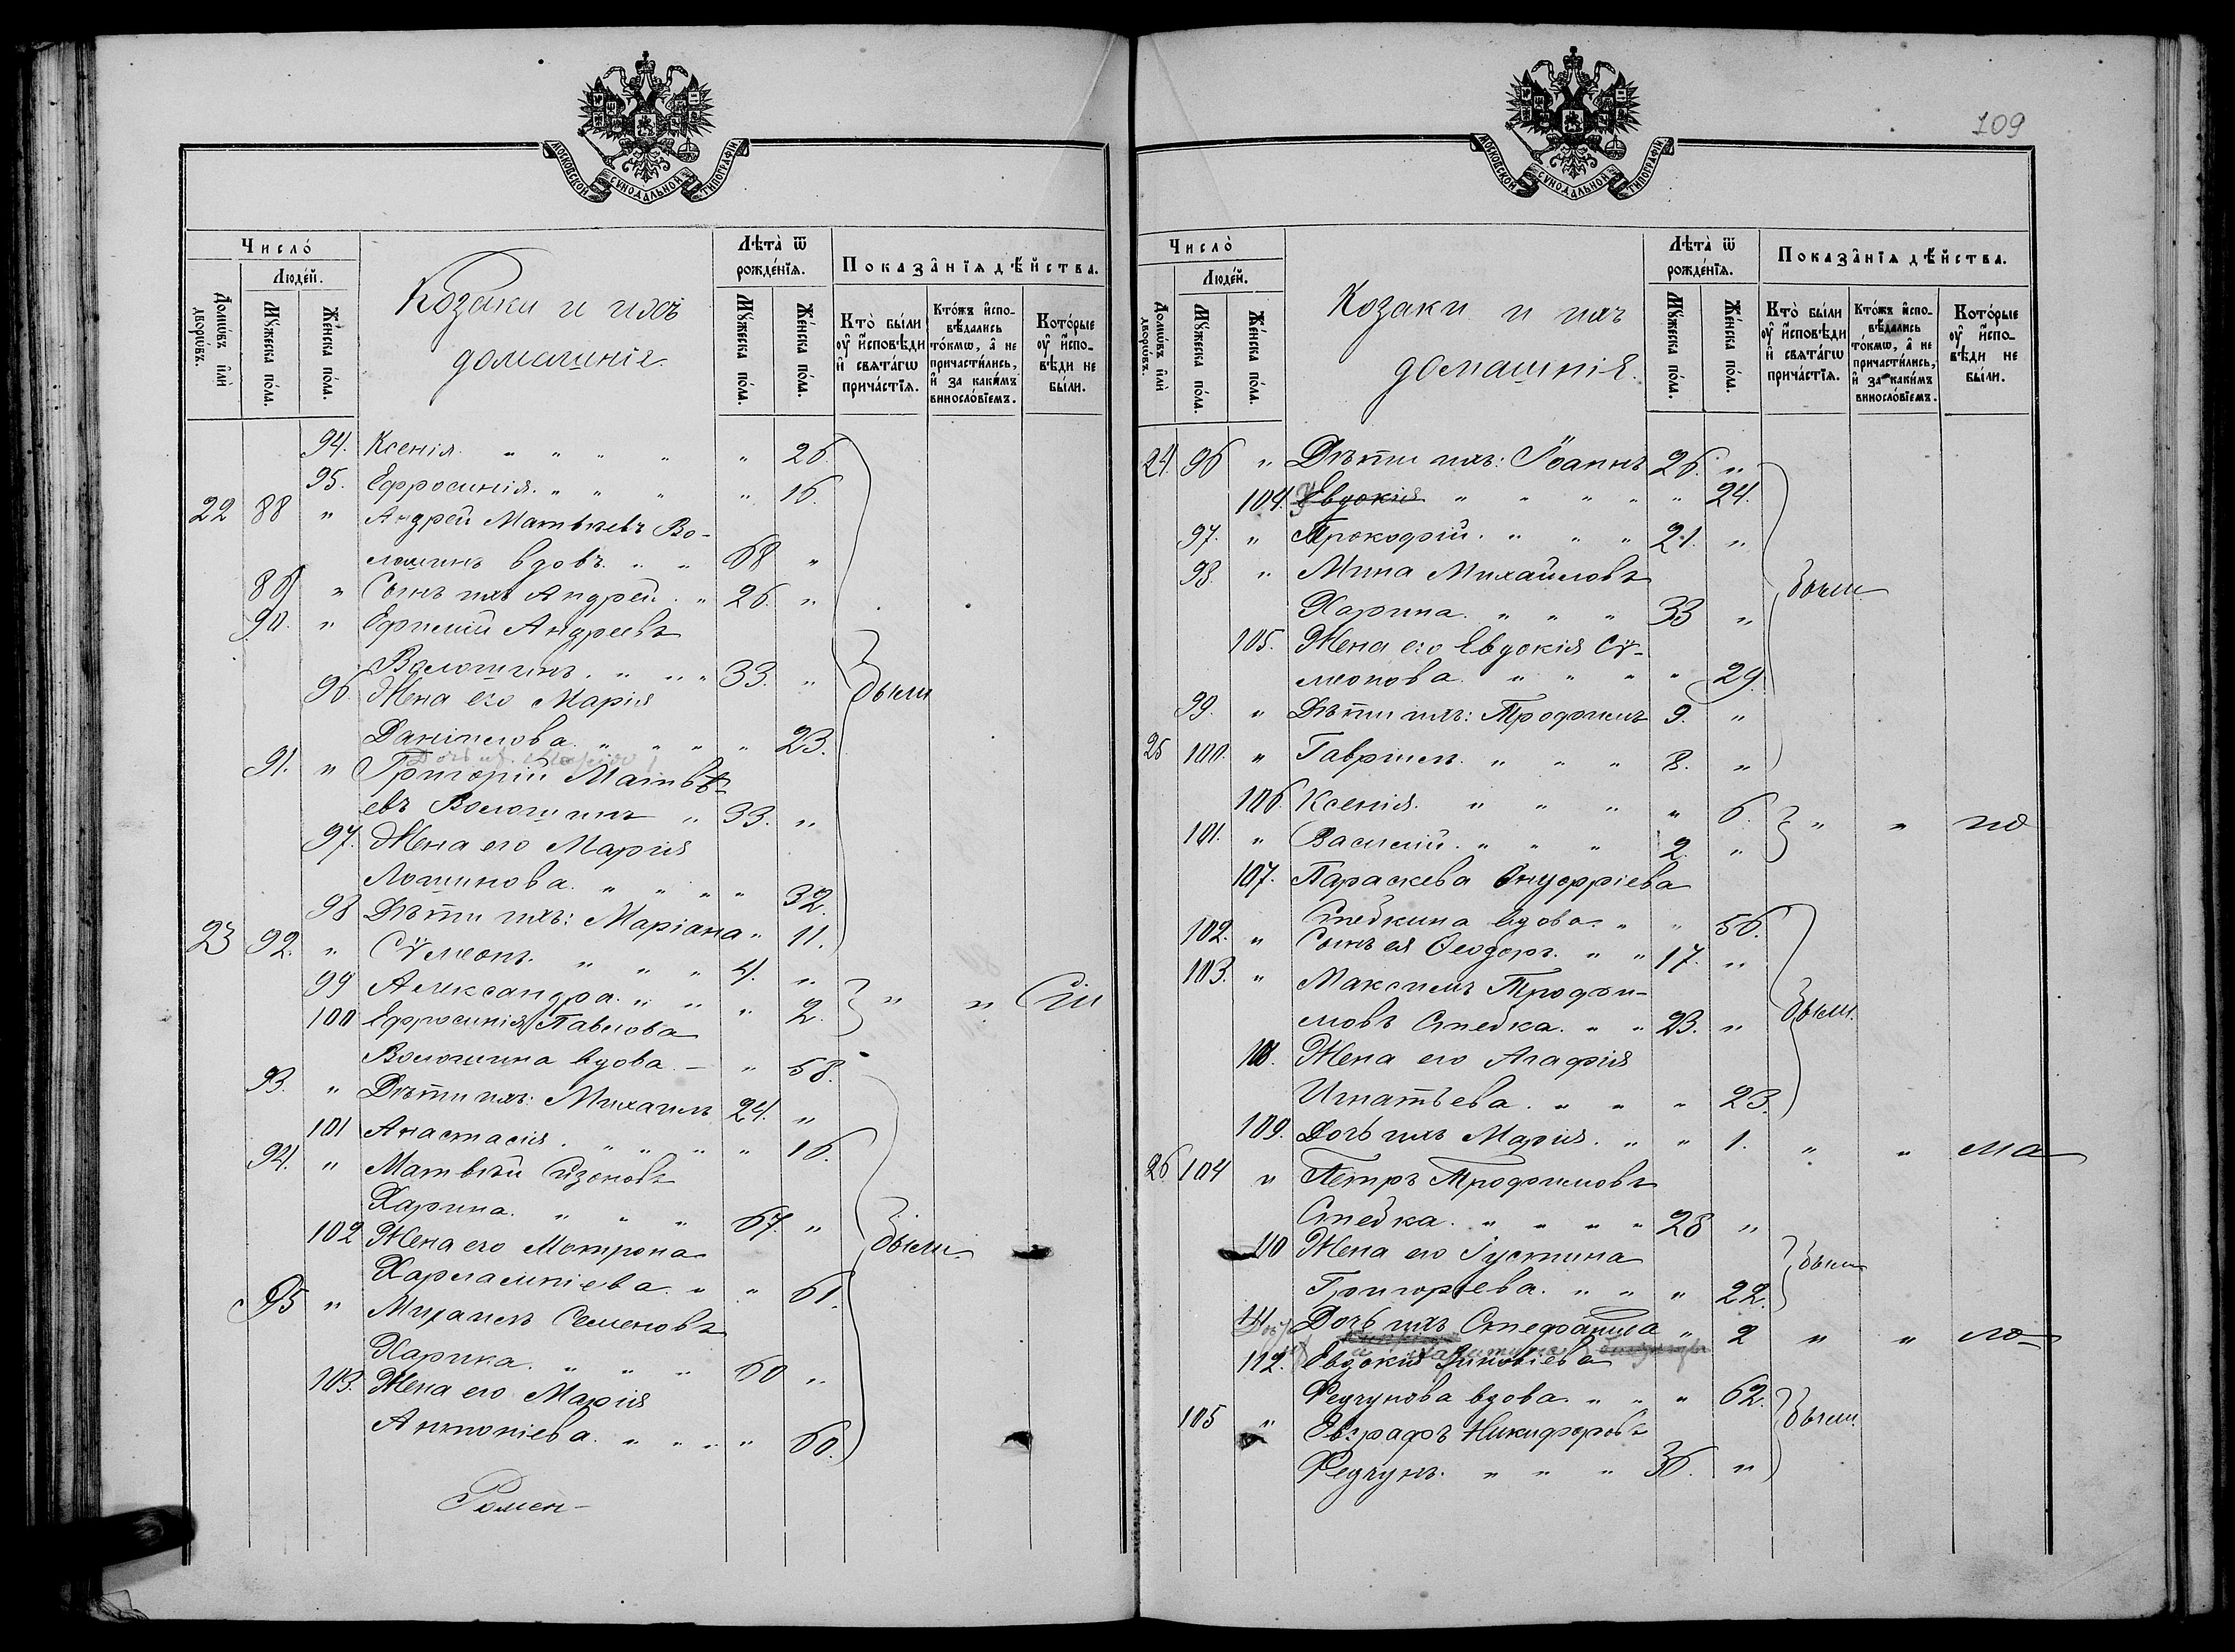 МОСКОВСКОЙ СѴНОДАЛЬНОЙ ТИПОГРАФІИ
Число̀
Люде́й.
Домѡ́въ и҆лѝ дворѡ́въ.
Мꙋ́жеска по́ла.
Же́нска по́ла.
Козаки и ихъ
домашніе.
Лѣта̀ ѿ рожде́нїѧ.
Мꙋ́жеска по́ла.
Же́нска по́ла.
Показа̂нїѧ дѣ́йства.
Кто̀ бы́ли ᲂу҆ и҆сповѣ́ди и҆ свѧта́гѡ прича́стїѧ.
Кто́жъ и҆сповѣ́дались то́кмѡ, а҆ не причасти́лись, и҆ за каки́мъ виносло́вїемъ.
Кото́рые ᲂу҆ и҆сповѣ́ди не бы́ли.
94. Ксенія " " " " " 26.
95. Ефросинія. " " " " 16.
22 88 " Андрей Матвѣевъ Во-
лошинъ вдовъ. " " 68 "
89 " Сынъ ихъ Андрей. " 26. "
90. " Ефимій Андреевъ
Волошинъ. " " " 33. "
96. Жена его Марія были
Даніилова. " " " " 23.
91. " Григорій Матвѣ-
евъ Волошинъ " 33. "
97. Жена его Марія
Логинова. " " " " 32.
98 Дѣти ихъ: Маріана " 11.
23 92. " Сѵмеонъ. " " " 4. "
99 Александра. " " " 2. " "
100 Ефросинія Павлова
Волошина вдова. – " 58.
93. " Дѣти ихъ: Михаилъ 24. "
101 Анастасія. " " " " 16.
94. " Матвѣй Сизоновъ
Харина. " " " 67. "
102 Жена его Мотрона были
Харлампіева. " " 61.
95 " Михаилъ Семеновъ
Харина. " " " 60 "
103. Жена его Марія
Антоніева. " " " " 60.
109
МОСКОВСКОЙ СѴНОДАЛЬНОЙ ТИПОГРАФІИ
Число̀
Люде́й.
Домѡ́въ и҆лѝ дворѡ́въ.
Мꙋ́жеска по́ла.
Же́нска по́ла.
Козаки и ихъ
домашнія.
Лѣта̀ ѿ рожде́нїѧ.
Мꙋ́жеска по́ла.
Же́нска по́ла.
Показа̂нїѧ дѣ́йства.
Кто̀ бы́ли ᲂу҆ и҆сповѣ́ди и҆ свѧта́гѡ прича́стїѧ.
Кто́жъ и҆сповѣ́дались то́кмѡ, а҆ не причасти́лись, и҆ за каки́мъ виносло́вїемъ.
Кото́рые ᲂу҆ и҆сповѣ́ди не бы́ли.
24 96 " Дѣти ихъ: Іоаннъ 26. "
104. Евдокія " " " " " 24.
97. " Прокофій. " " " 21. "
98. " Мина Михайловъ были
Харина. " " " 33 "
105. Жена его Евдокія Сѵ-
меонова. " " " " 29.
99. " Дѣти ихъ: Трофимъ 9. "
25 100. " Гавріилъ. " " " 8. "
106. Ксенія. " " " " 6. " " по
101. " Василій. " " " 2. "
107. Параскева Онуфріева
Стебкина вдова. " " 56.
102. " Сынъ ея Ѳеодоръ. " " 17. "
103. " Максимъ Трофи-
мовъ Стебка. " " 23. " были.
108. Жена его Агафія
Игнатьева. " " " 23.
109. Дочь ихъ Марія. " " 1. " " ма
26 104 " Петръ Трофимовъ
Стебка. " " " " 28 "
110 Жена его Іустина были
Григорьева. " " " 22.
111. Дочь ихъ Стефанида " 2 " " ло
112. Евдокія Зиновіева
Редчунова вдова. " " " 62.
105 " Евграфъ Никифоровъ были.
Редчунъ. " " " 36. "